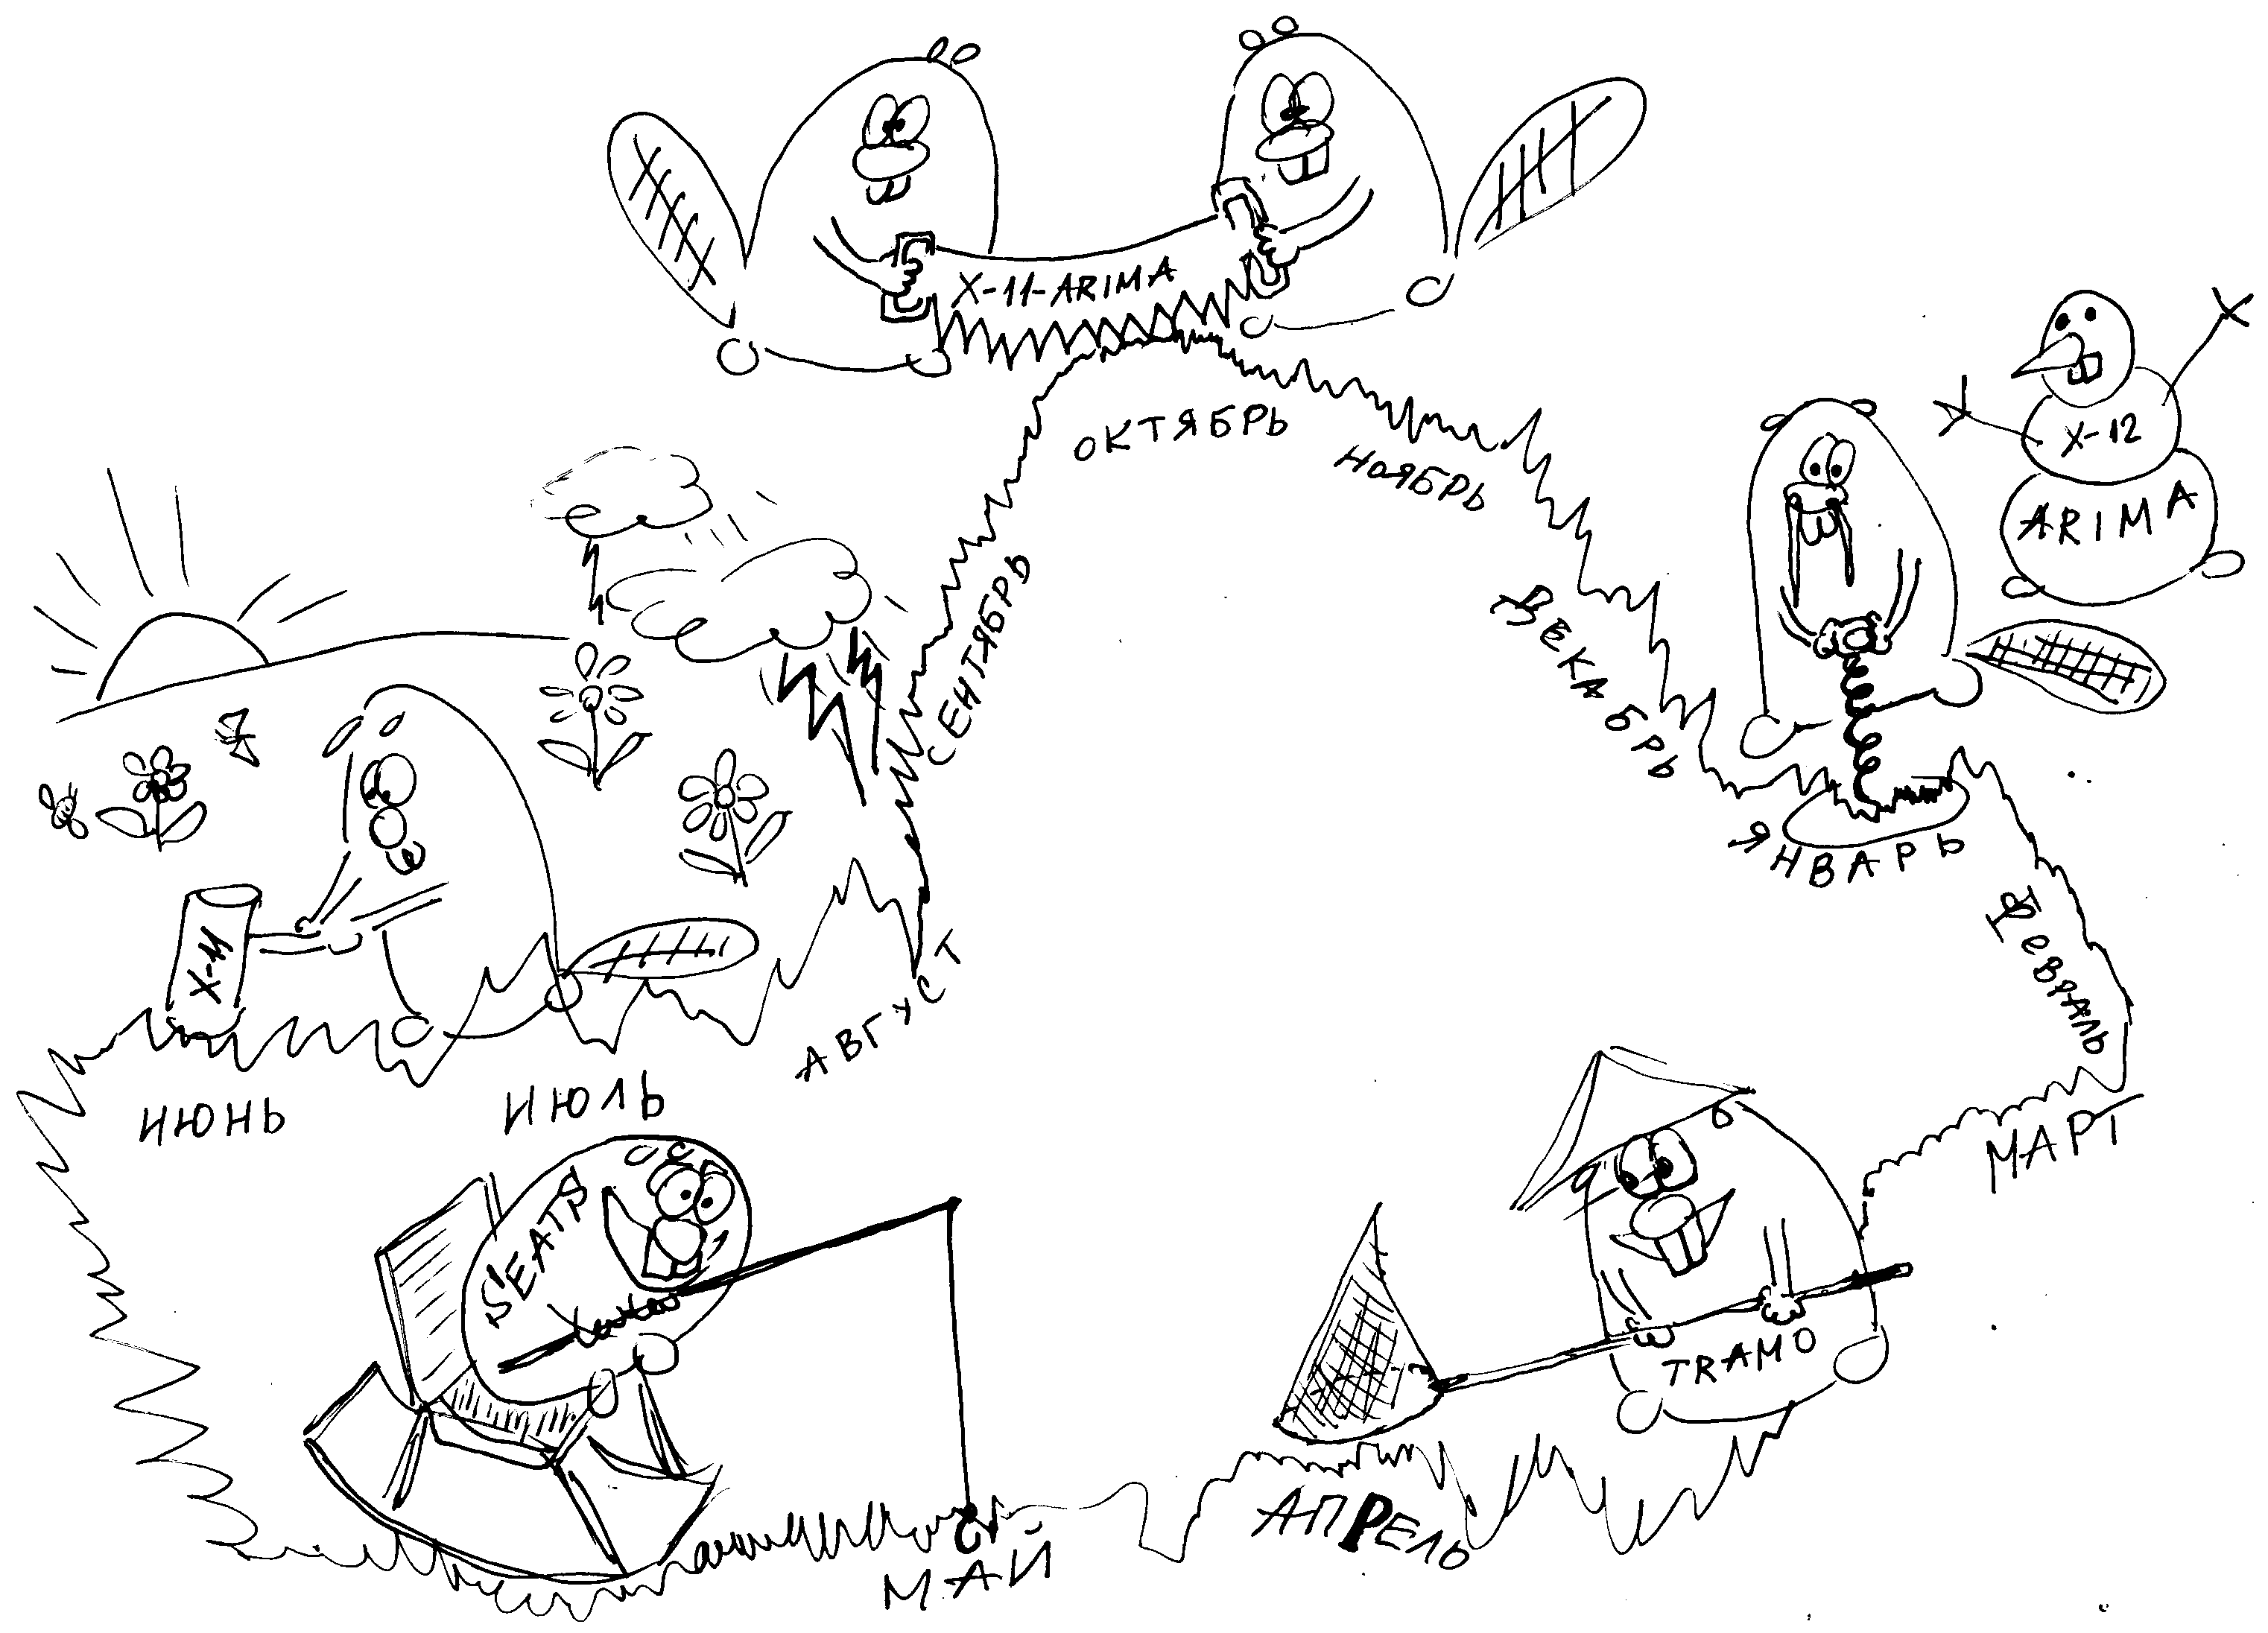 X-11-ARIMA
ОКТЯБРЬ
НОЯБРЬ
X-12
ARIMA
СЕНТЯБРЬ
ДЕКАБРЬ
ЯНВАРЬ
X-11
ФЕВРАЛЬ
АВГУСТ
ИЮНЬ
ИЮЛЬ
МАРТ
SEATS
TRAMO
АПРЕЛЬ
МАЙ